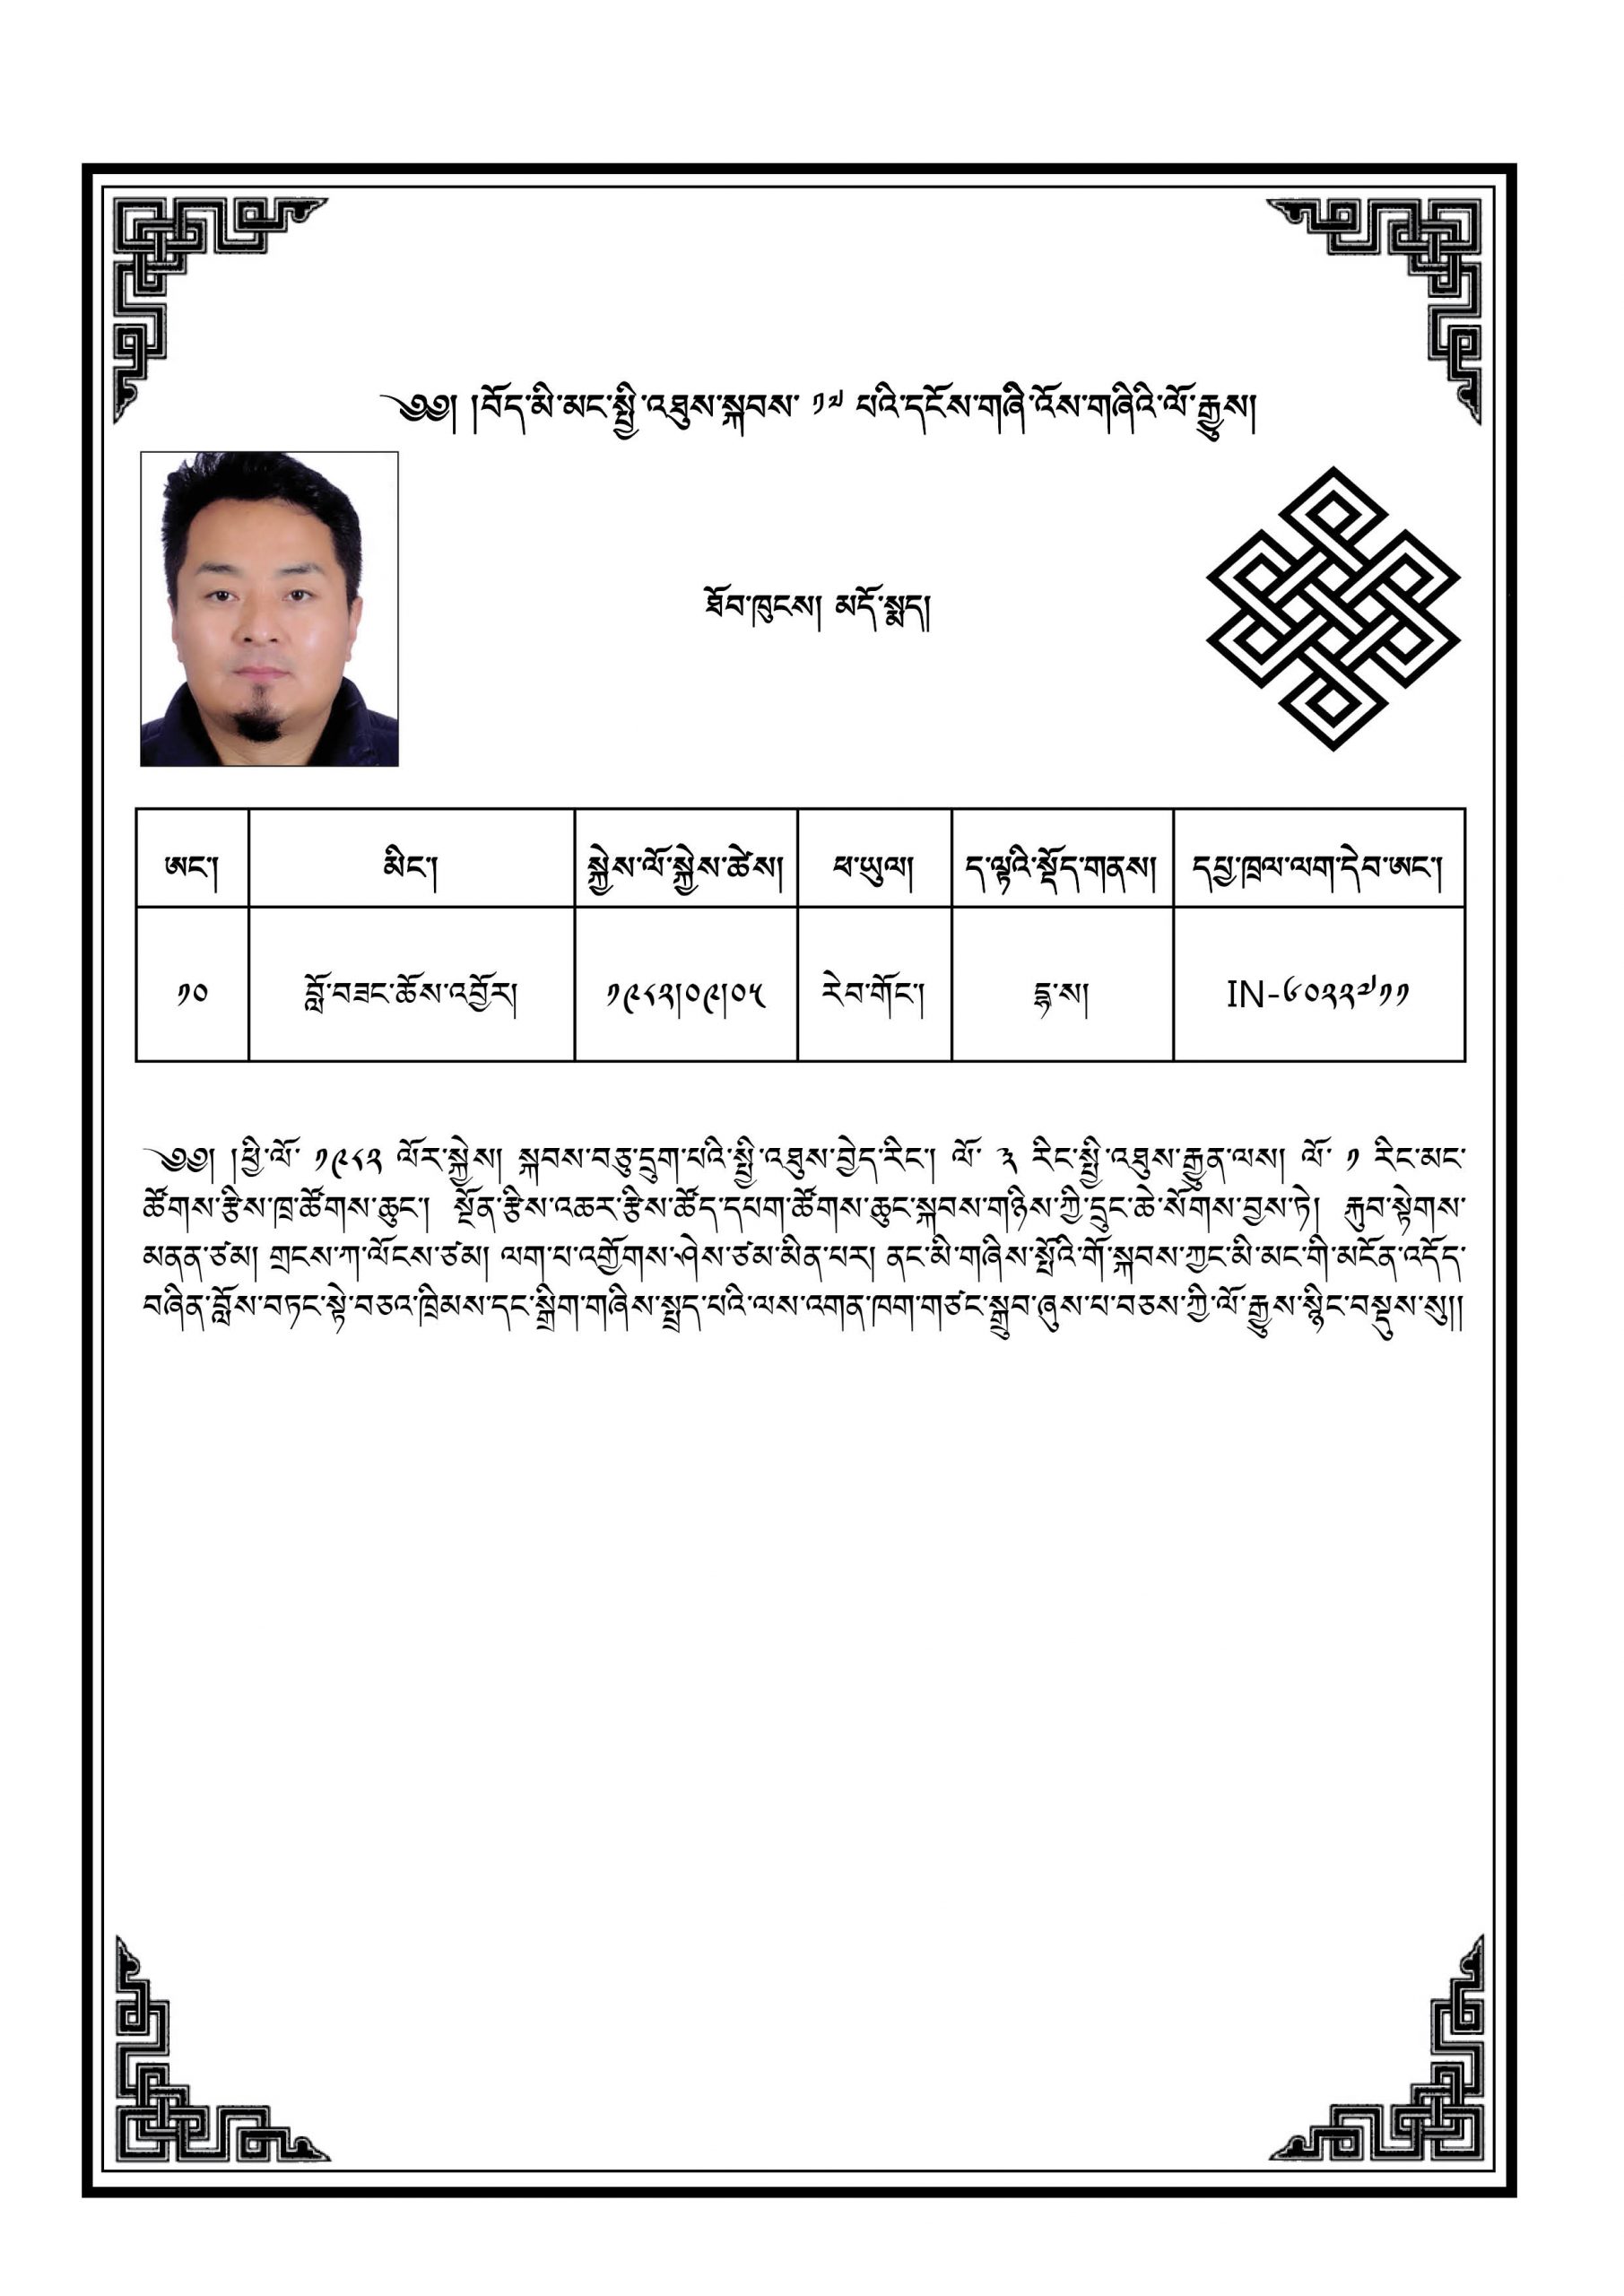 ༄༅། །བོད་མི་མང་སྤྱི་འཐུས་སྐབས་ ༡༧ པའི་དངོས་གཞི་འོས་གཞིའི་ལོ་རྒྱུས།
ཐོབ་ཁུངས། མདོ་སྨད།
ཨང་། མིང་། སྐྱེས་ལོ་སྐྱེས་ཚེས། ཕ་ཡུལ། ད་ལྟའི་སྡོད་གནས། དཔྱ་ཁྲལ་ལག་དེབ་ཨང་།
༡༠ བློ་བཟང་ཆོས་འབྱོར། ༡༩༨༢།༠༩།༠༥ རེབ་གོང་། དྷ་ས། IN-༦༠༢༢༧༡༡
༄༅། །ཕྱི་ལོ་ ༡༩༨༢ ལོར་སྐྱེས། སྐབས་བཅུ་དྲུག་པའི་སྤྱི་འཐུས་བྱེད་རིང་། ལོ་ ༣ རིང་སྤྱི་འཐུས་རྒྱུན་ལས། ལོ་ ༡ རིང་མང་
ཚོགས་རྩིས་ཁྲ་ཚོགས་ཆུང་། སྔོན་རྩིས་འཆར་རྩིས་ཚོད་དཔག་ཚོགས་ཆུང་སྐབས་གཉིས་ཀྱི་དྲུང་ཆེ་སོགས་བྱས་ཏེ། རྐུབ་སྟེགས་
མནན་ཙམ། གྲངས་ཀ་ལོངས་ཙམ། ལག་པ་འགྱོགས་ཤེས་ཙམ་མིན་པར། ནང་མི་གཞིས་སྤོའི་གོ་སྐབས་ཀྱང་མི་མང་གི་མངོན་འདོད་
བཞིན་བློས་བཏང་སྟེ་བཅའ་ཁྲིམས་དང་སྒྲིག་གཞིས་སྤྲད་པའི་ལས་འགན་ཁག་གཙང་སྒྲུབ་ཞུས་པ་བཅས་ཀྱི་ལོ་རྒྱུས་སྙིང་བསྡུས་སུ།།